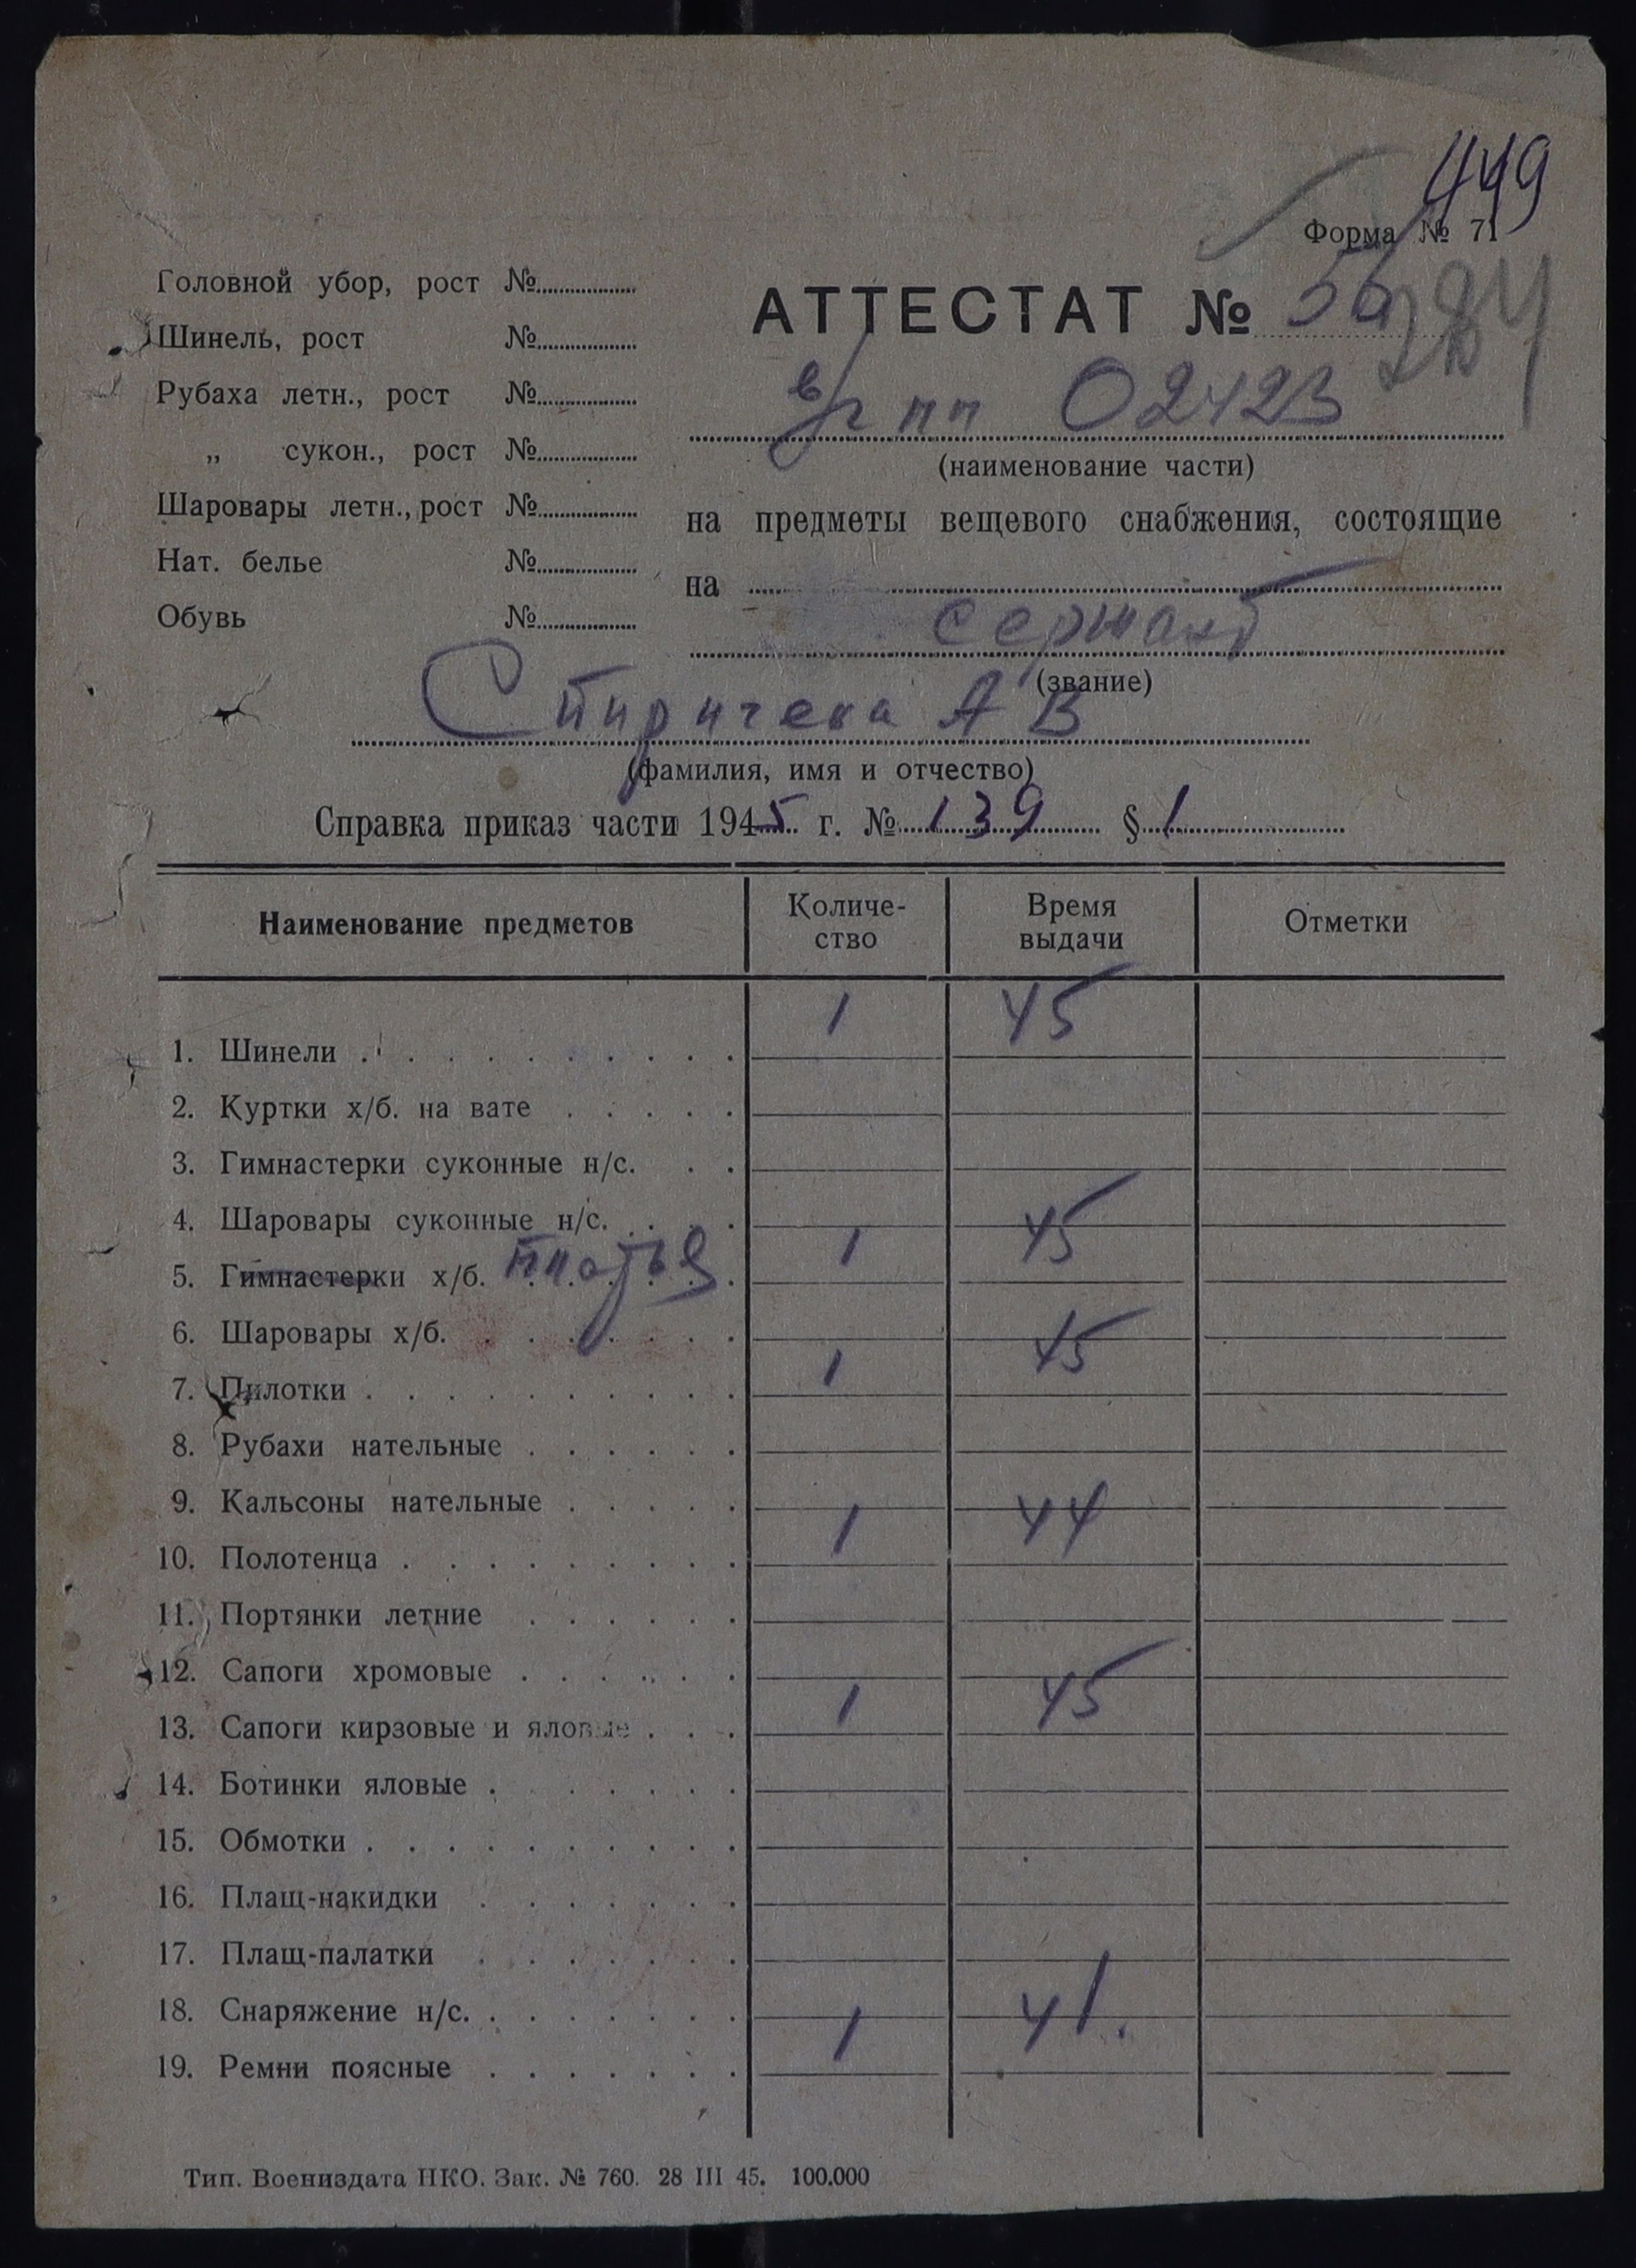 449
Форма № 71
Головной убор, рост №
Шинель, рост №
Рубаха летн., рост №
„ сукон., рост №
Шаровары летн., рост №
Нат. белье №
Обувь №
АТТЕСТАТ № 56
в/ч пп 02423
(наименование части)
на предметы вещевого снабжения, состоящие
на
сержант
(звание)
Спиричева А В
(фамилия, имя и отчество)
Справка приказ части 1945 г. № 139 § 1
Наименование предметов Количе-ство Время выдачи Отметки
1. Шинели 1 45
2. Куртки х/б. на вате
3. Гимнастерки суконные н/с.
4. Шаровары суконные н/с.
5. Гимнастерки х/б. платья 1 45
6. Шаровары х/б.
7. Пилотки 1 45
8. Рубахи нательные
9. Кальсоны нательные
10. Полотенца 1 44
11. Портянки летние
12. Сапоги хромовые
13. Сапоги кирзовые и яловые 1 45
14. Ботинки яловые
15. Обмотки
16. Плащ-накидки
17. Плащ-палатки
18. Снаряжение н/с.
19. Ремни поясные 1 41.
Тип. Воениздата НКО. Зак. № 760. 28 III 45. 100.000